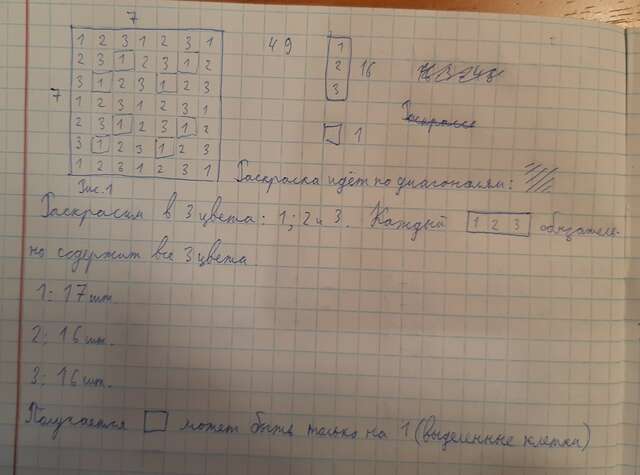 7
7
1 2 3 1 2 3 1
2 3 1 2 3 1 2
3 1 2 3 1 2 3
1 2 3 1 2 3 1
2 3 1 2 3 1 2
3 1 2 3 1 2 3
1 2 3 1 2 3 1
Рис.1
49
1
2
3
16
1
Раскраска идёт по диагоналям:
Раскрасим в 3 цвета: 1; 2 и 3. Каждый 1 2 3 обязатель-
но содержит все 3 цвета
1: 17 шт.
2: 16 шт.
3: 16 шт.
Получается может быть только на 1 (выделенные клетки)